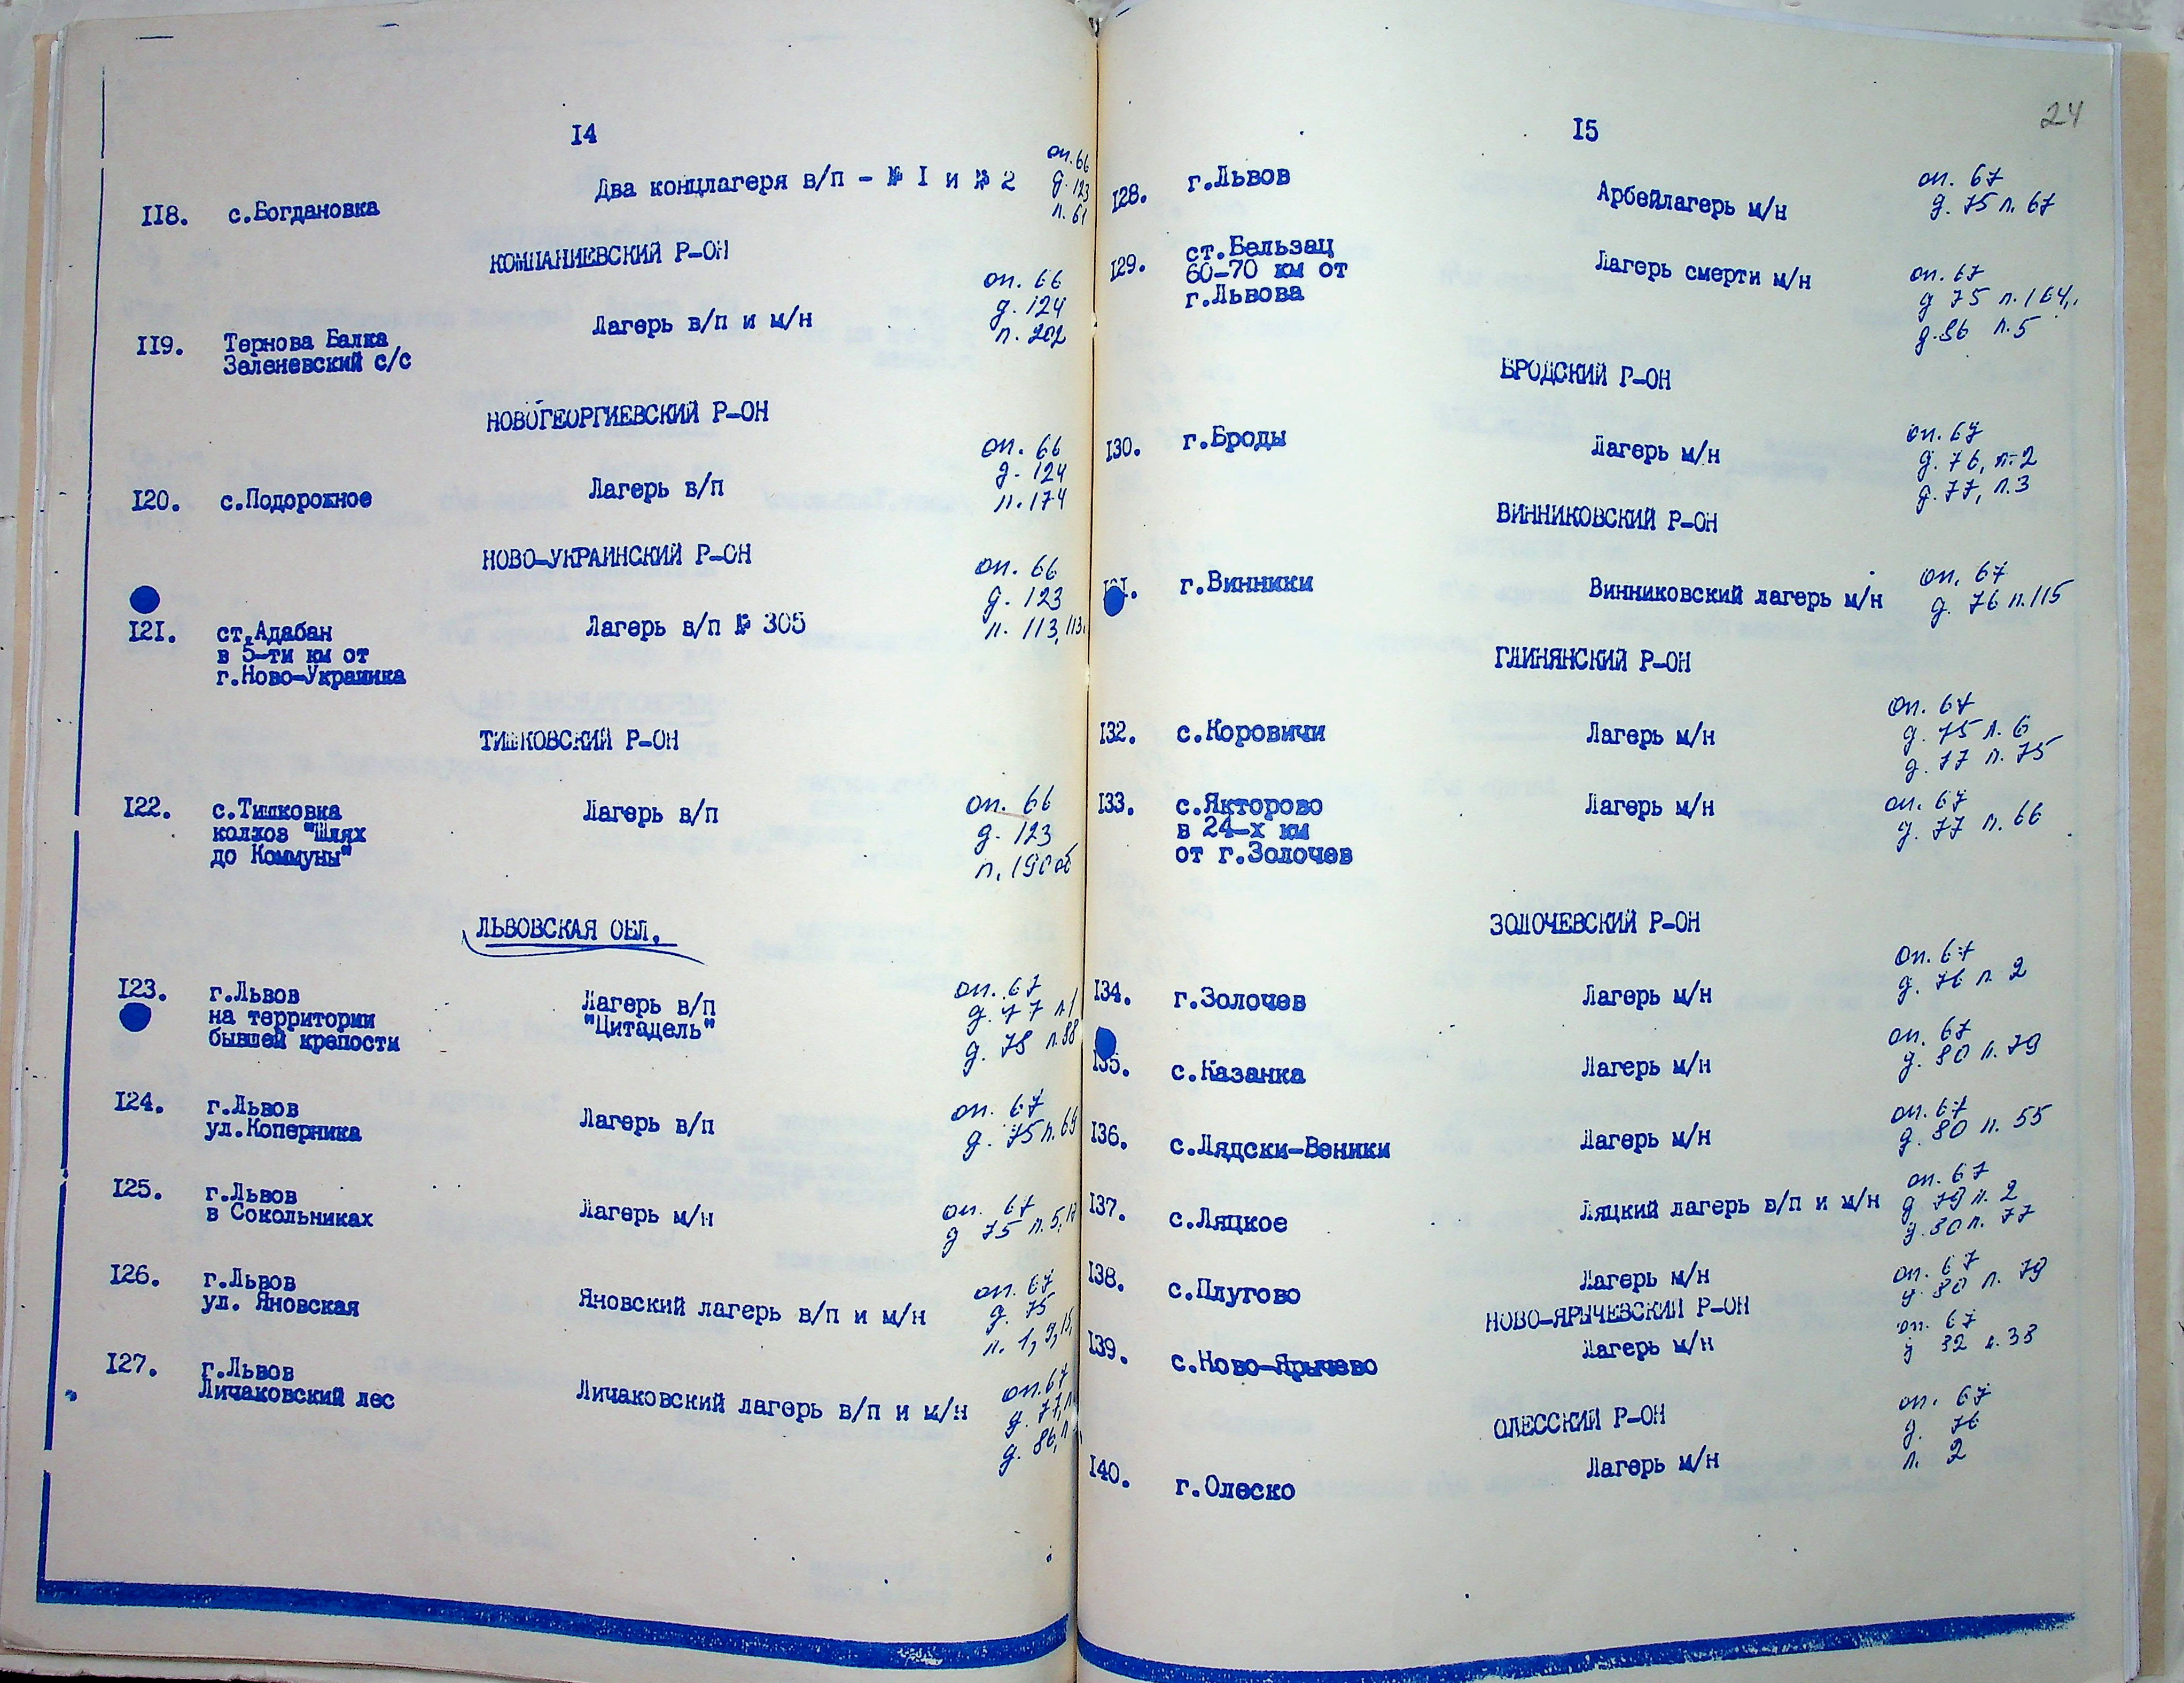 14
118. с.Богдановка Два концлагеря в/п - № I и № 2 оп. 66
д. 123
л. 61
КОМПАНИЕВСКИЙ Р-ОН
119. Тернова Балка Лагерь в/п и м/н оп. 66
Зеленевский с/с д. 124
л. 202
НОВОГЕОРГИЕВСКИЙ Р-ОН
120. с.Подорожное Лагерь в/п оп. 66
д. 124
л. 174
НОВО-УКРАИНСКИЙ Р-ОН
121. ст.Адабан Лагерь в/п № 305 оп. 66
в 5-ти км от д. 123
г.Ново-Украинка л. 113,
ТИШКОВСКИЙ Р-ОН
122. с.Тишковка Лагерь в/п оп. 66
колхоз "Шлях д. 123
до Коммуны" л. 190 об
ЛЬВОВСКАЯ ОБЛ.
123. г.Львов Лагерь в/п оп. 67
на территории "Цитадель" д. 77 л1
бывшей крепости д. 78 л.88
124. г.Львов Лагерь в/п оп. 67
ул.Коперника д. 75 л.
125. г.Львов Лагерь м/н оп. 67
в Сокольниках д 75 л. 5,
126. г.Львов Яновский лагерь в/п и м/н оп. 67
ул. Яновская д. 75
л. 1, 9, 15,
127. г.Львов Личаковский лагерь в/п и м/н оп. 67
Личаковский лес д. 77,
д. 86,
24
15
128. г.Львов Арбейлагерь м/н оп. 67
д. 75 л. 67
129. ст.Бельзац Лагерь смерти м/н оп. 67
60-70 км от д 75 л. 164,
г.Львова д. 86 л. 5
БРОДСКИЙ Р-ОН
130. г.Броды Лагерь м/н оп. 67
д. 76, л. 2
д. 77, л. 3
ВИННИКОВСКИЙ Р-ОН
131. г.Винники Винниковский лагерь м/н оп. 67
д. 76 л. 115
ГЛИНЯНСКИЙ Р-ОН
132. с.Коровичи Лагерь м/н оп. 67
д. 75 л. 6
д. 77 л. 75
133. с.Якторово Лагерь м/н оп. 67
в 24-х км д. 77 л. 66
от г.Золочев
ЗОЛОЧЕВСКИЙ Р-ОН
134. г.Золочев Лагерь м/н оп. 67
д. 76 л. 2
135. с.Казанка Лагерь м/н оп. 67
д. 80 л. 79
136. с.Лядски-Веники Лагерь м/н оп. 67
д. 80 л. 55
137. с.Ляцкое Ляцкий лагерь в/п и м/н оп. 67
д 79 л. 2
д. 80 л. 77
138. с.Плугово Лагерь м/н оп. 67
д. 80 л. 79
НОВО-ЯРЫЧЕВСКИЙ Р-ОН
139. с.Ново-Ярычево Лагерь м/н оп. 67
д 82 л. 38
ОЛЕССКИЙ Р-ОН
140. г.Олеско Лагерь м/н оп. 67
д. 76
л. 2